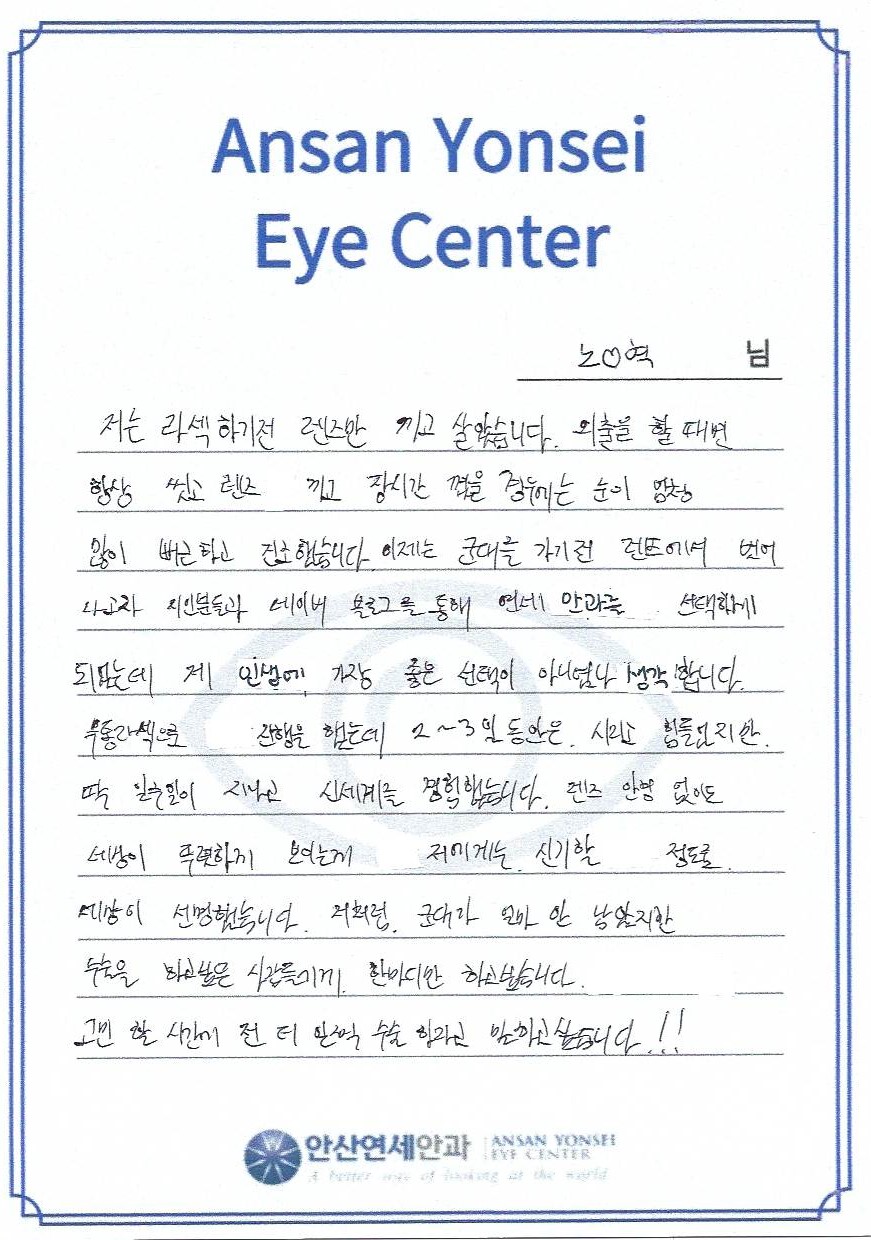 Ansan Yonsei
Eye Center
노♡혁 님
저는 라섹하기전 렌즈만 끼고 살았습니다. 외출을 할 때면
항상 씻고 렌즈 끼고 장시간 꼈을 경우에는 눈이 엄청
많이 뻐근하고 건조했습니다. 이제는 군대를 가기전 렌즈에서 벗어
나고자 지인분들과 네이버 블로그를 통해 연세 안과를 선택하게
되었는데 제 인생에 가장 좋은 선택이 아니었나 생각 합니다.
무통라섹으로 진행을 했는데 2~3일 동안은 시리고 힘들었지만.
딱 일주일이 지나고 신세계를 경험했습니다. 렌즈 안경 없이도
세상이 뚜렷하게 보이는게 저에게는 신기할 정도로
세상이 선명했습니다. 저처럼. 군대가 얼마 안 남았지만
수술을 하고싶은 사람들에게 한마디만 하고싶습니다.
고민 할 시간에 전 더 수술 하라고 말하고싶습니다!!
안산연세안과 ANSAN YONSEI
EYE CENTER
A better way of looking at the world